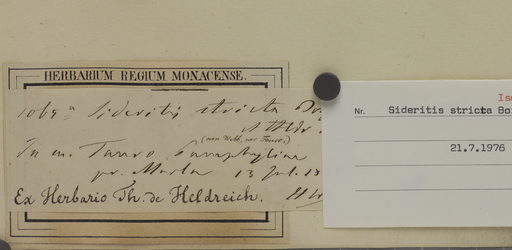 HERBARIUM REGIUM MONACENSE.
1069 a Sideritis stricta Bo
& Hldr.
(non Webb, nec
In m. Tauro Pamphyliae
pr. Marla 13 Jul. 18
Ex Herbario Th. de Heldreich.
Iso
Nr. Sideritis stricta Boi
21.7.1976